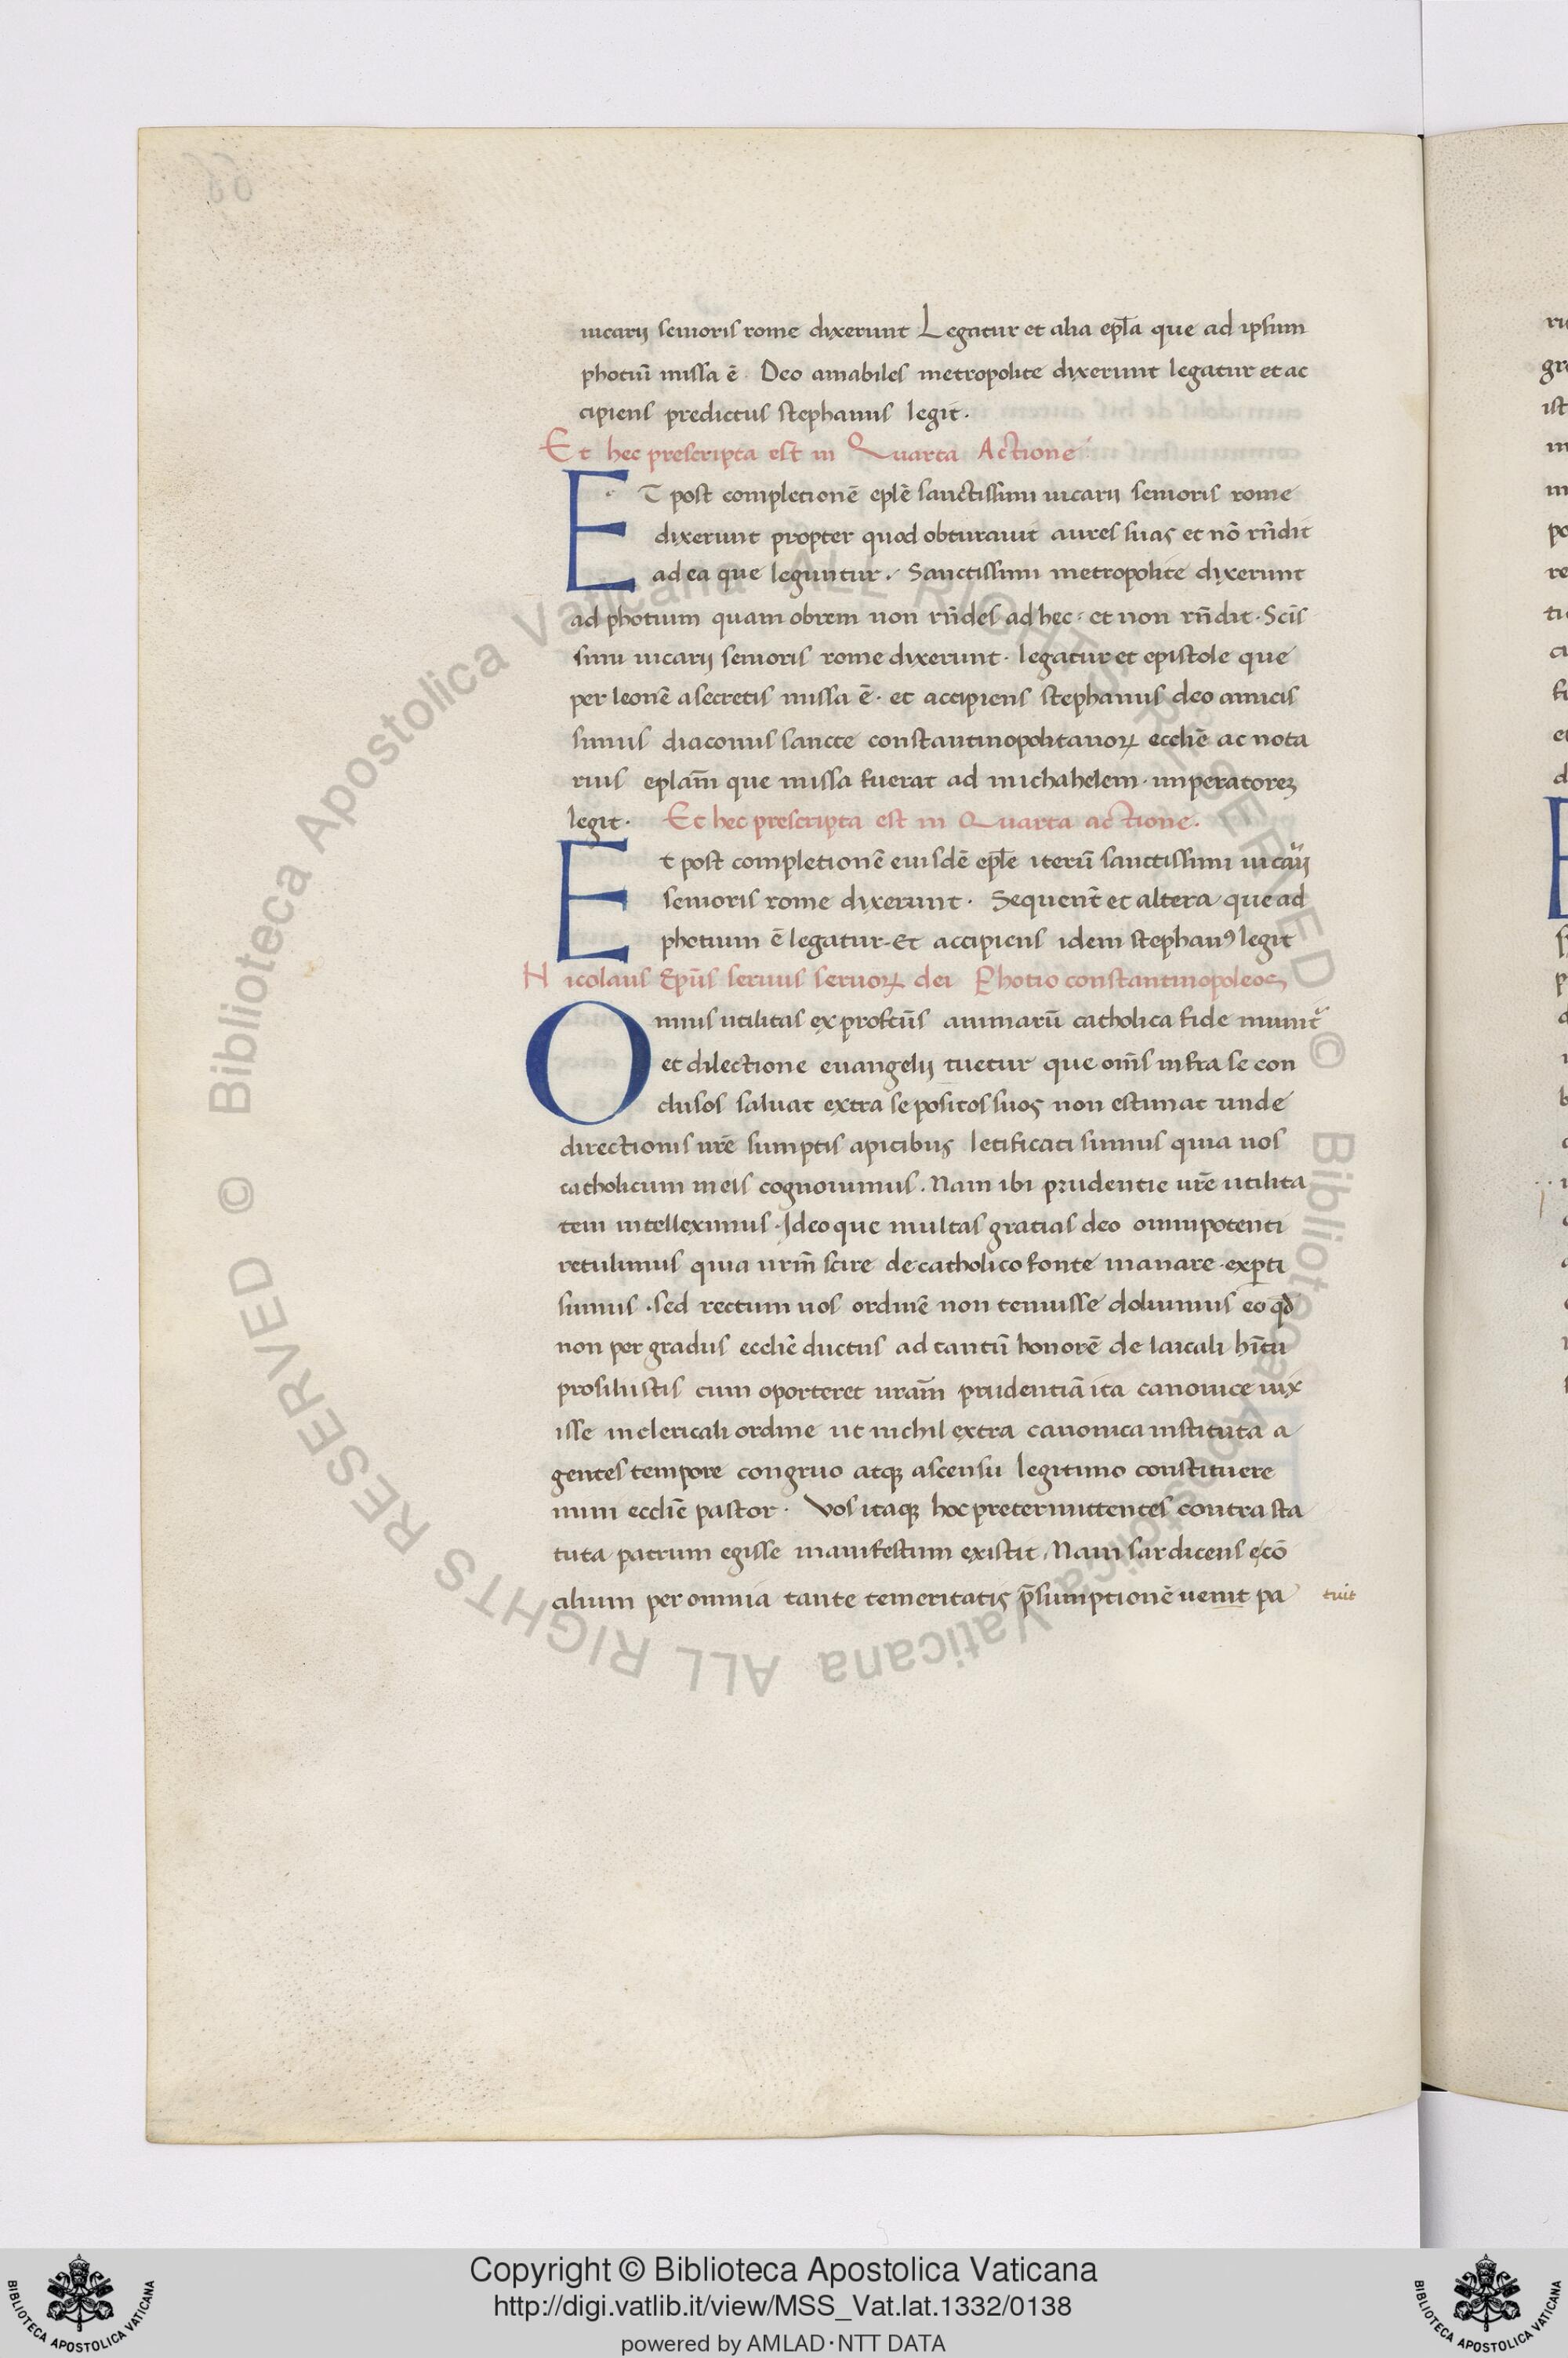 uicarij senioris rome dixerunt Legatur et alia epl̅a que ad ipsum
photiũ missa ẽ. Deo amabiles metropolite dixerunt legatur et ac
cipiens predictus stephanus legit.
Et hec prescripta est in Quarta Actione
ET post completionẽ eplẽ sanctissimi uicarii senioris rome
dixerunt propter quod obturauit aures suas et nõ rñdit
ad ea que leguntur. Sanctissimi metropolite dixerunt
ad photium quam obrem non rñdes ad hec. et non rñdit. Scĩs
simi uicarij senioris rome dixerunt. legatur et epistole que
per leonẽ asecretis missa ẽ. et accipiens stephanus deo amicis
simus diaconus sancte constantinopolitanoꝝ eccliẽ ac nota
rius eplam̃ que missa fuerat ad michahelem. imperatoreꝫ
legit. Et hec prescripta est in Quarta actione.
Et post completionẽ eiusdẽ epl̅e iterũ sanctissimi uicarij
senioris rome dixerunt. Sequent̃ et altera que ad
photium ẽ legatur. Et accipiens idem stephanꝰ legit
Nicolaus Ep̃us seruus seruoꝝ dei Photio constantinopoleos
Omnis utilitas ex profctũs animarũ catholica fide munit᷑
et dilectione euangelij tuetur que om̃s infra se con
clusos saluat extra se positos suos non estimat unde
directionis ur̃e sumptis apicibus letificati sumus quia uos
catholicum in eis cognouimus. Nam ibi prudentie ur̃e utilita
tem intelleximus. Ideoque multas gratias deo omnipotenti
retulimus quia urm̃ scire de catholico fonte manare. exꝑti
sumus. sed rectum uos ordinẽ non tenuisse doluimus eo qd̃
non per gradus eccliẽ ductus ad tantũ honorẽ de laicali hĩtu
prosiluistis cum oporteret uram̃ prudentiã ita canonice uix
isse in clericali ordine ut nichil extra canonica instituta a
gentes tempore congruo atqꝫ ascensu legitimo constituere
mini eccliẽ pastor. Vos itaqꝫ hoc pretermittentes contra sta
tuta patrum egisse manifestum existit. Nam sardicens ecõ
cilium per omnia tante temeritatis p̃sumptionẽ uenit pa tuit
Copyright © Biblioteca Apostolica Vaticana
http://digi.vatlib.it/view/MSS_Vat.lat.1332/0138
powered by AMLAD·NTT DATA
BIBLIOTECA APOSTOLICA VATICANA
BIBLIOTECA APOSTOLICA VATICANA
© Biblioteca Apostolica Vaticana ALL RIGHTS RESERVED © Biblioteca Apostolica Vaticana ALL RIGHTS RESERVED